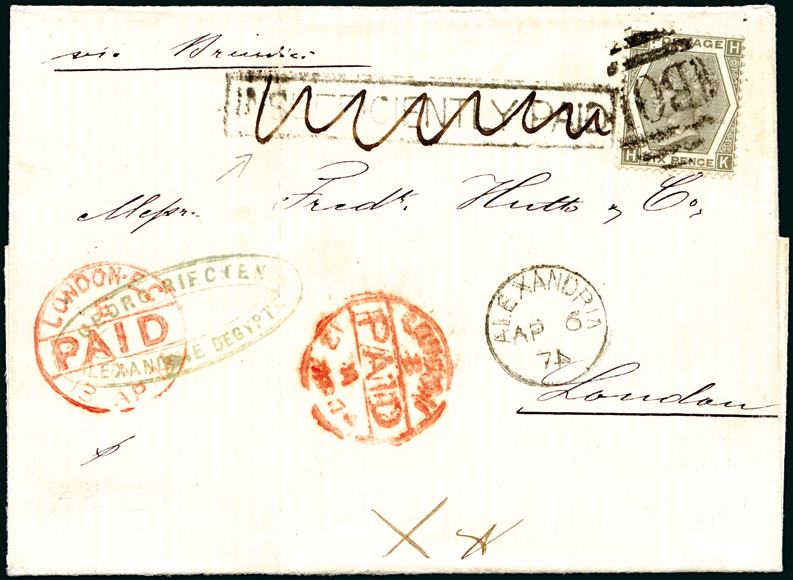 via Brindisi
INSUFFICIENTLY PAID
POSTAGE
H
B01
H
SIX PENCE
K
Messr. Fredk. Huth & Co,
LONDON-E.C
PAID
13 AP
GEORG RIECTEN
ALEXANDRIE D'EGYPTE
LONDON
PAID
13 AP 74
ALEXANDRIA
AP 6
74
London